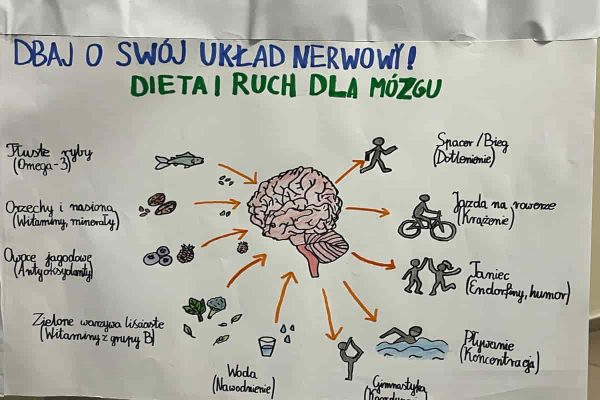 DBAJ O SWÓJ UKŁAD NERWOWY!
DIETA I RUCH DLA MÓZGU
Tłuste ryby
(Omega-3)
Orzechy i nasiona
(Witaminy, minerały)
Owoce jagodowe
(Antyoksydanty)
Zielone warzywa liściaste
(Witaminy z grupy B)
Woda
(Nawodnienie)
Spacer/Bieg
(Dotlenienie)
Jazda na rowerze
(Krążenie)
Taniec
(Endorfiny, humor)
Pływanie
(Koncentracja)
Gimnastyka